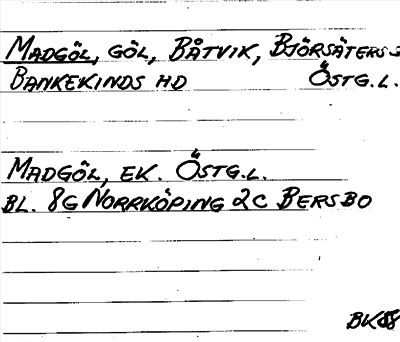 MADGÖL, GÖL, BÅTVIK, BJÖRSÄTERS
BANKEKINDS HD ÖSTG.L.
MADGÖL, EK. ÖSTG.L.
BL. 8G NORRKÖPING 2C BERSBO